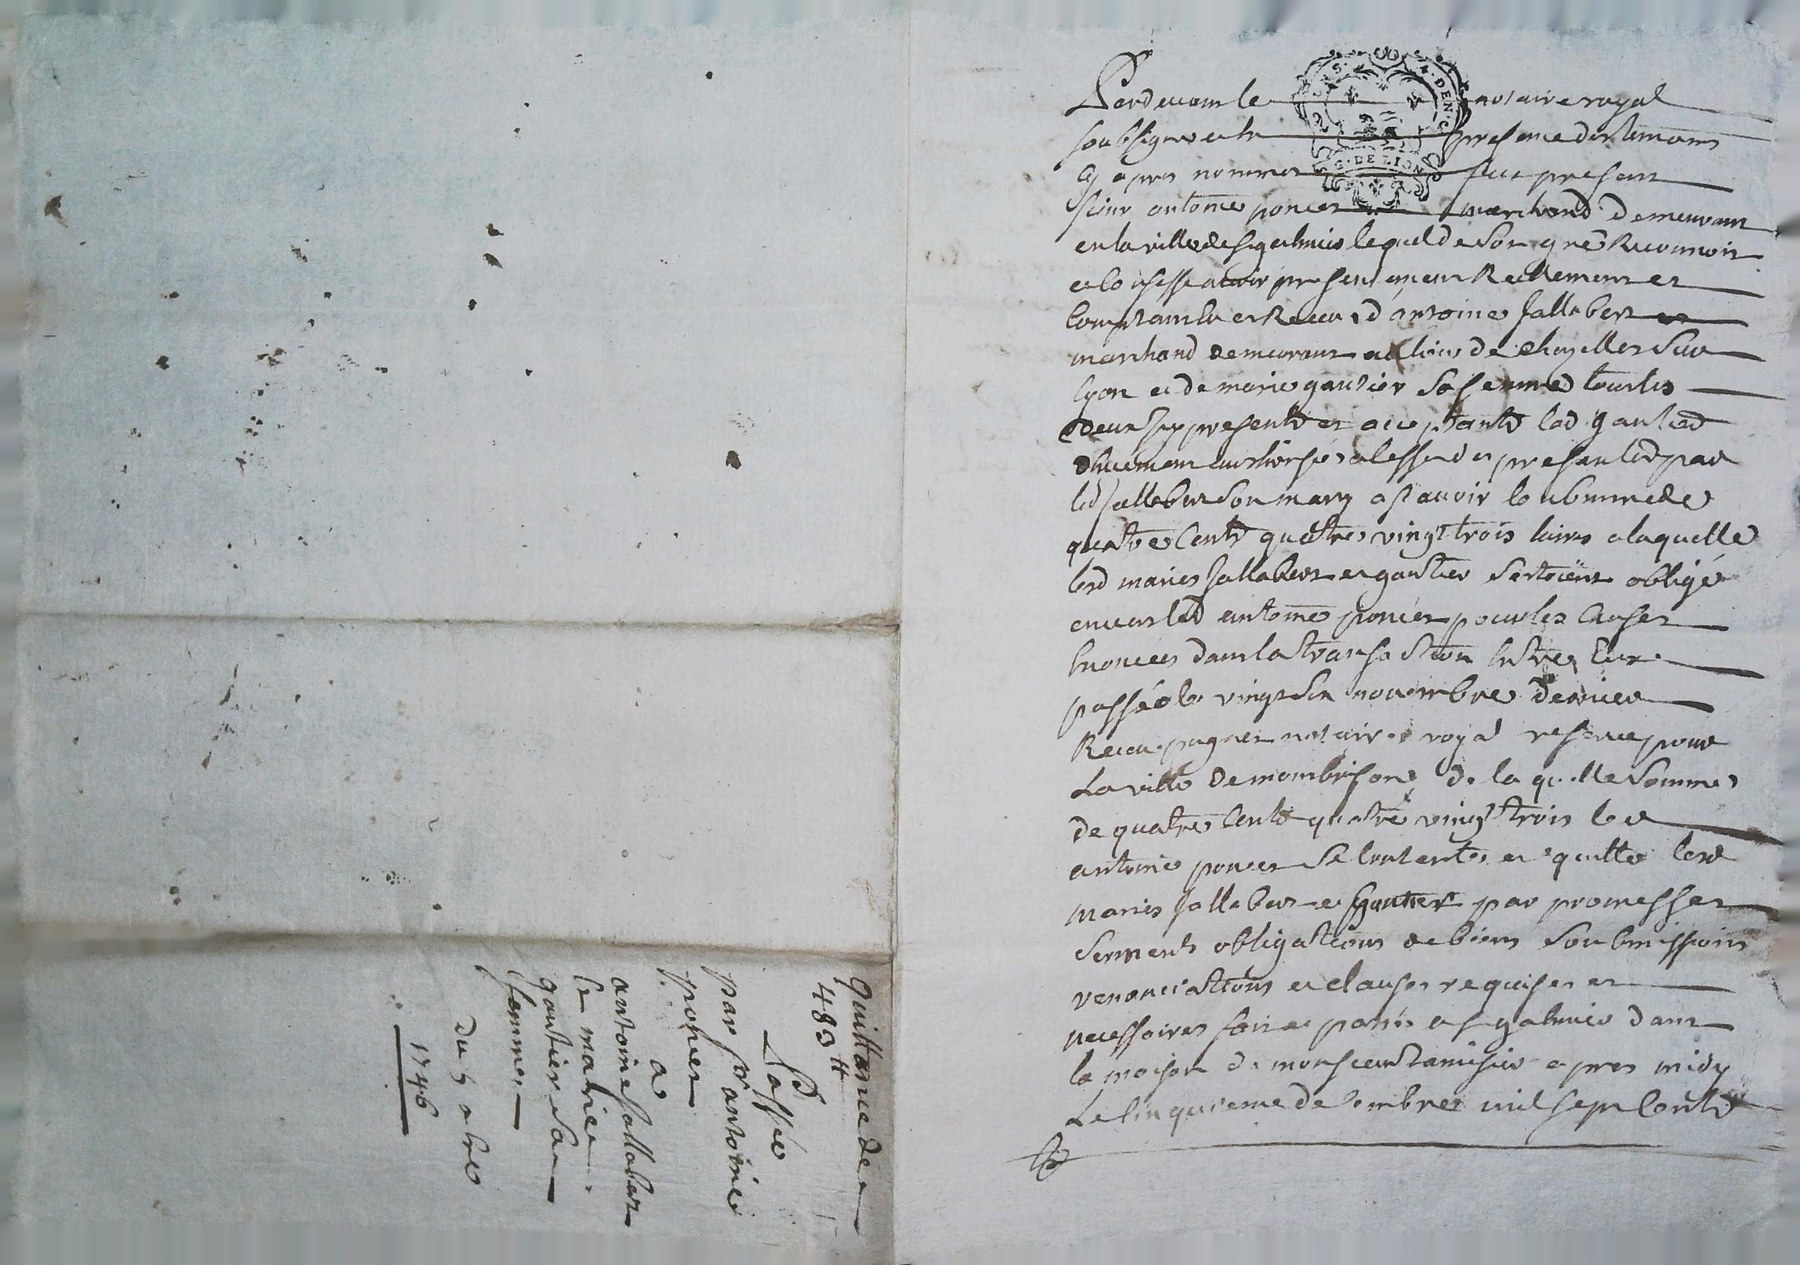 Quittance de
483 ⁋
Passée
par Sr antoine
poncet
a
antoine Jallabert
et marie
gautier sa
femme
du 5 xbre
1746
DEUX S. 4. DEN.
G. DE LION
Pardevant le notaire royal
soubsigné et la presence des temoins
cy apres nommes fut present
sieur antoine poncet marchand demeurant
en la ville de st galmier lequel de son gré Reconnoit
et confesse avoir presentement Reellement et
comptant eu et Receu d'antoine Jallabert
marchand demeurant au lieu de chazelles sur
lyon et de marie gautier sa femme tous les
deux icy presents et acceptants lad gautier
dhuement authorisée a l'effet des presentes par
led Jallabert son mary a sçavoir la somme de
quatre cents quatre vingt trois livres a laquelle
lesd maries Jallabert et gautier s'estoient obligé
envers led antoine poncet pour les causes
Enoncées dans la transaction entre Eux
passée le vingt six novembre dernier
Receu pugnet notaire royal reservé pour
La ville de mombrison, de la quelle somme
de quatre cents quatre vingt trois led
antoine poncet se contente et quitte lesd
maries Jallabert et Gautier par promesses
serments obligations de biens soubmissions
renonciations et clauses requises et
necessaires fait et passé a st galmier dans
la maison de monsieur apres midy
Le cinquieme decembre mil sept cents